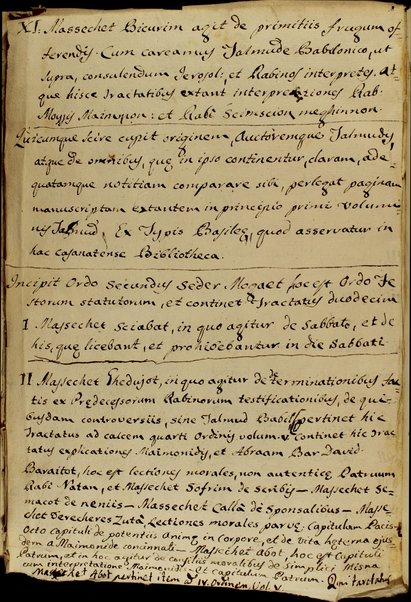 XI: Massechet Biccurim agit de primitijs frugum of
ferendis. Cum careamus Talmude Babilonico, ut
supra, consulendum Jerosol: et Rabinos interpretes. At
que hisce tractatibus extant interpretationes Rab:
Moysis Maimonon: et Rabi Scimscion meghinnon.
Quicumque scire cupit originem, Auctoremque Talmudis,
atque de omnibus, quę in ipso continentur, claram, ade
quatamque notitiam comparare sibi, perlegat paginam
manuscriptam extantem in principio primi Volumi
nis Talmud, Ex Typis Basileę, quod asservatur in
hac Casanatense Bibliotheca.
Incipit Ordo Secundus Seder Moņaet hoc est Ordo Fe
storum statutorum, et continet Tractatus duodecim
I Massechet Sciabat, in quo agitur de Sabbato, et de
his, quę licebant, et prohibebantur in die Sabbati
II Massechet Ghedujot, in quo agitur de determinationibus fac
tis ex Prędecessorum Rabinorum testificationibus, de qui
busdam controversiis, sine Talmud Babil pertinet hic
tractatus ad calcem quarti Ordinis volum. V. continet hic trac
tatus explicationes Maimonidis, et Abraam Bar David.
Baraitot, hoc est lectiones morales, non autenticę Patruum
Rabi Natan, et Massechet Sofrim de Scribis — Massechet Se
macot de neniis — Massechet Callà de Sponsalibus — Masse
chet Derecheres Zutà Lectiones morales parvę: Capitulum Pacis.
Octo capituli de potentiis Animę in corpore, et de vita hęterna ejus
dem a Maimonide concinnata — Massechet Abot, hoc est Capituli
Patrum, et in hoc agitur de consiliis moralibus de simplici Misna
cum interpretatione Maimonidis. Et capitulum Patrum.
Massechet Abot pertinet item ad IV. Ordinem Vol. V.